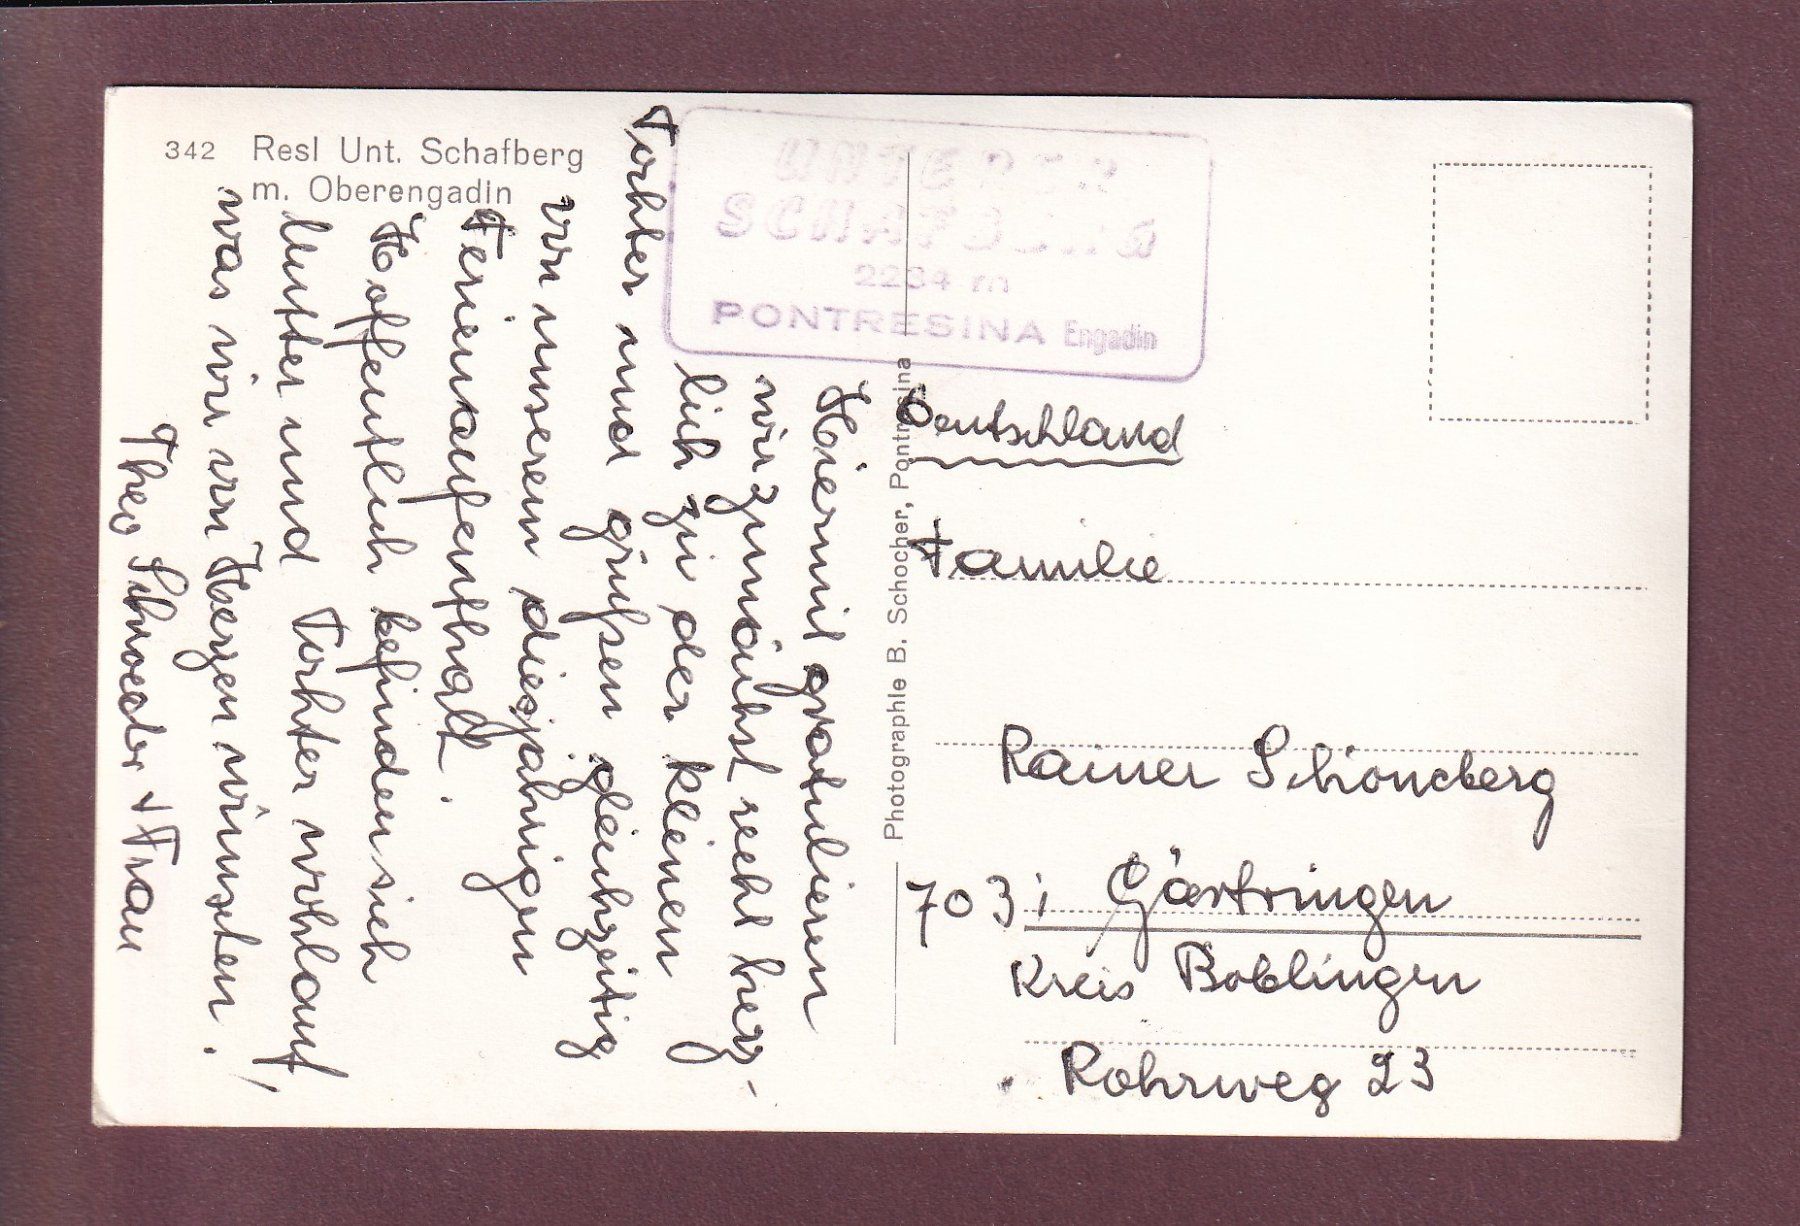 342 Resl Unt. Schafberg
m. Oberengadin
UNTERER
SCHAFBERG
2234 m
PONTRESINA Engadin
Hiermit gratulieren
wir zunächst recht herz-
lich zu der kleinen
Tochter und grüßen gleichzeitig
von unserem diesjährigen
Ferienaufenthalt.
Hoffentlich befinden sich
Mutter und Tochter wohlauf,
was wir von Herzen wünschen.
Theo + Frau
Photographie B. Schocher, Pontresina
Deutschland
Familie
Rainer Schöneberg
7031 Gärtringen
Kreis Böblingen
Rohrweg 23